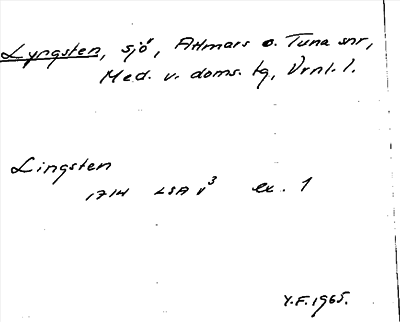 Lyngsten, sjö, Attmars o. Tuna snr,
Med. v. doms. tg, Vrnl. l.
Lingsten
1714 LSA v³ ex. 1
Y.F. 1965.